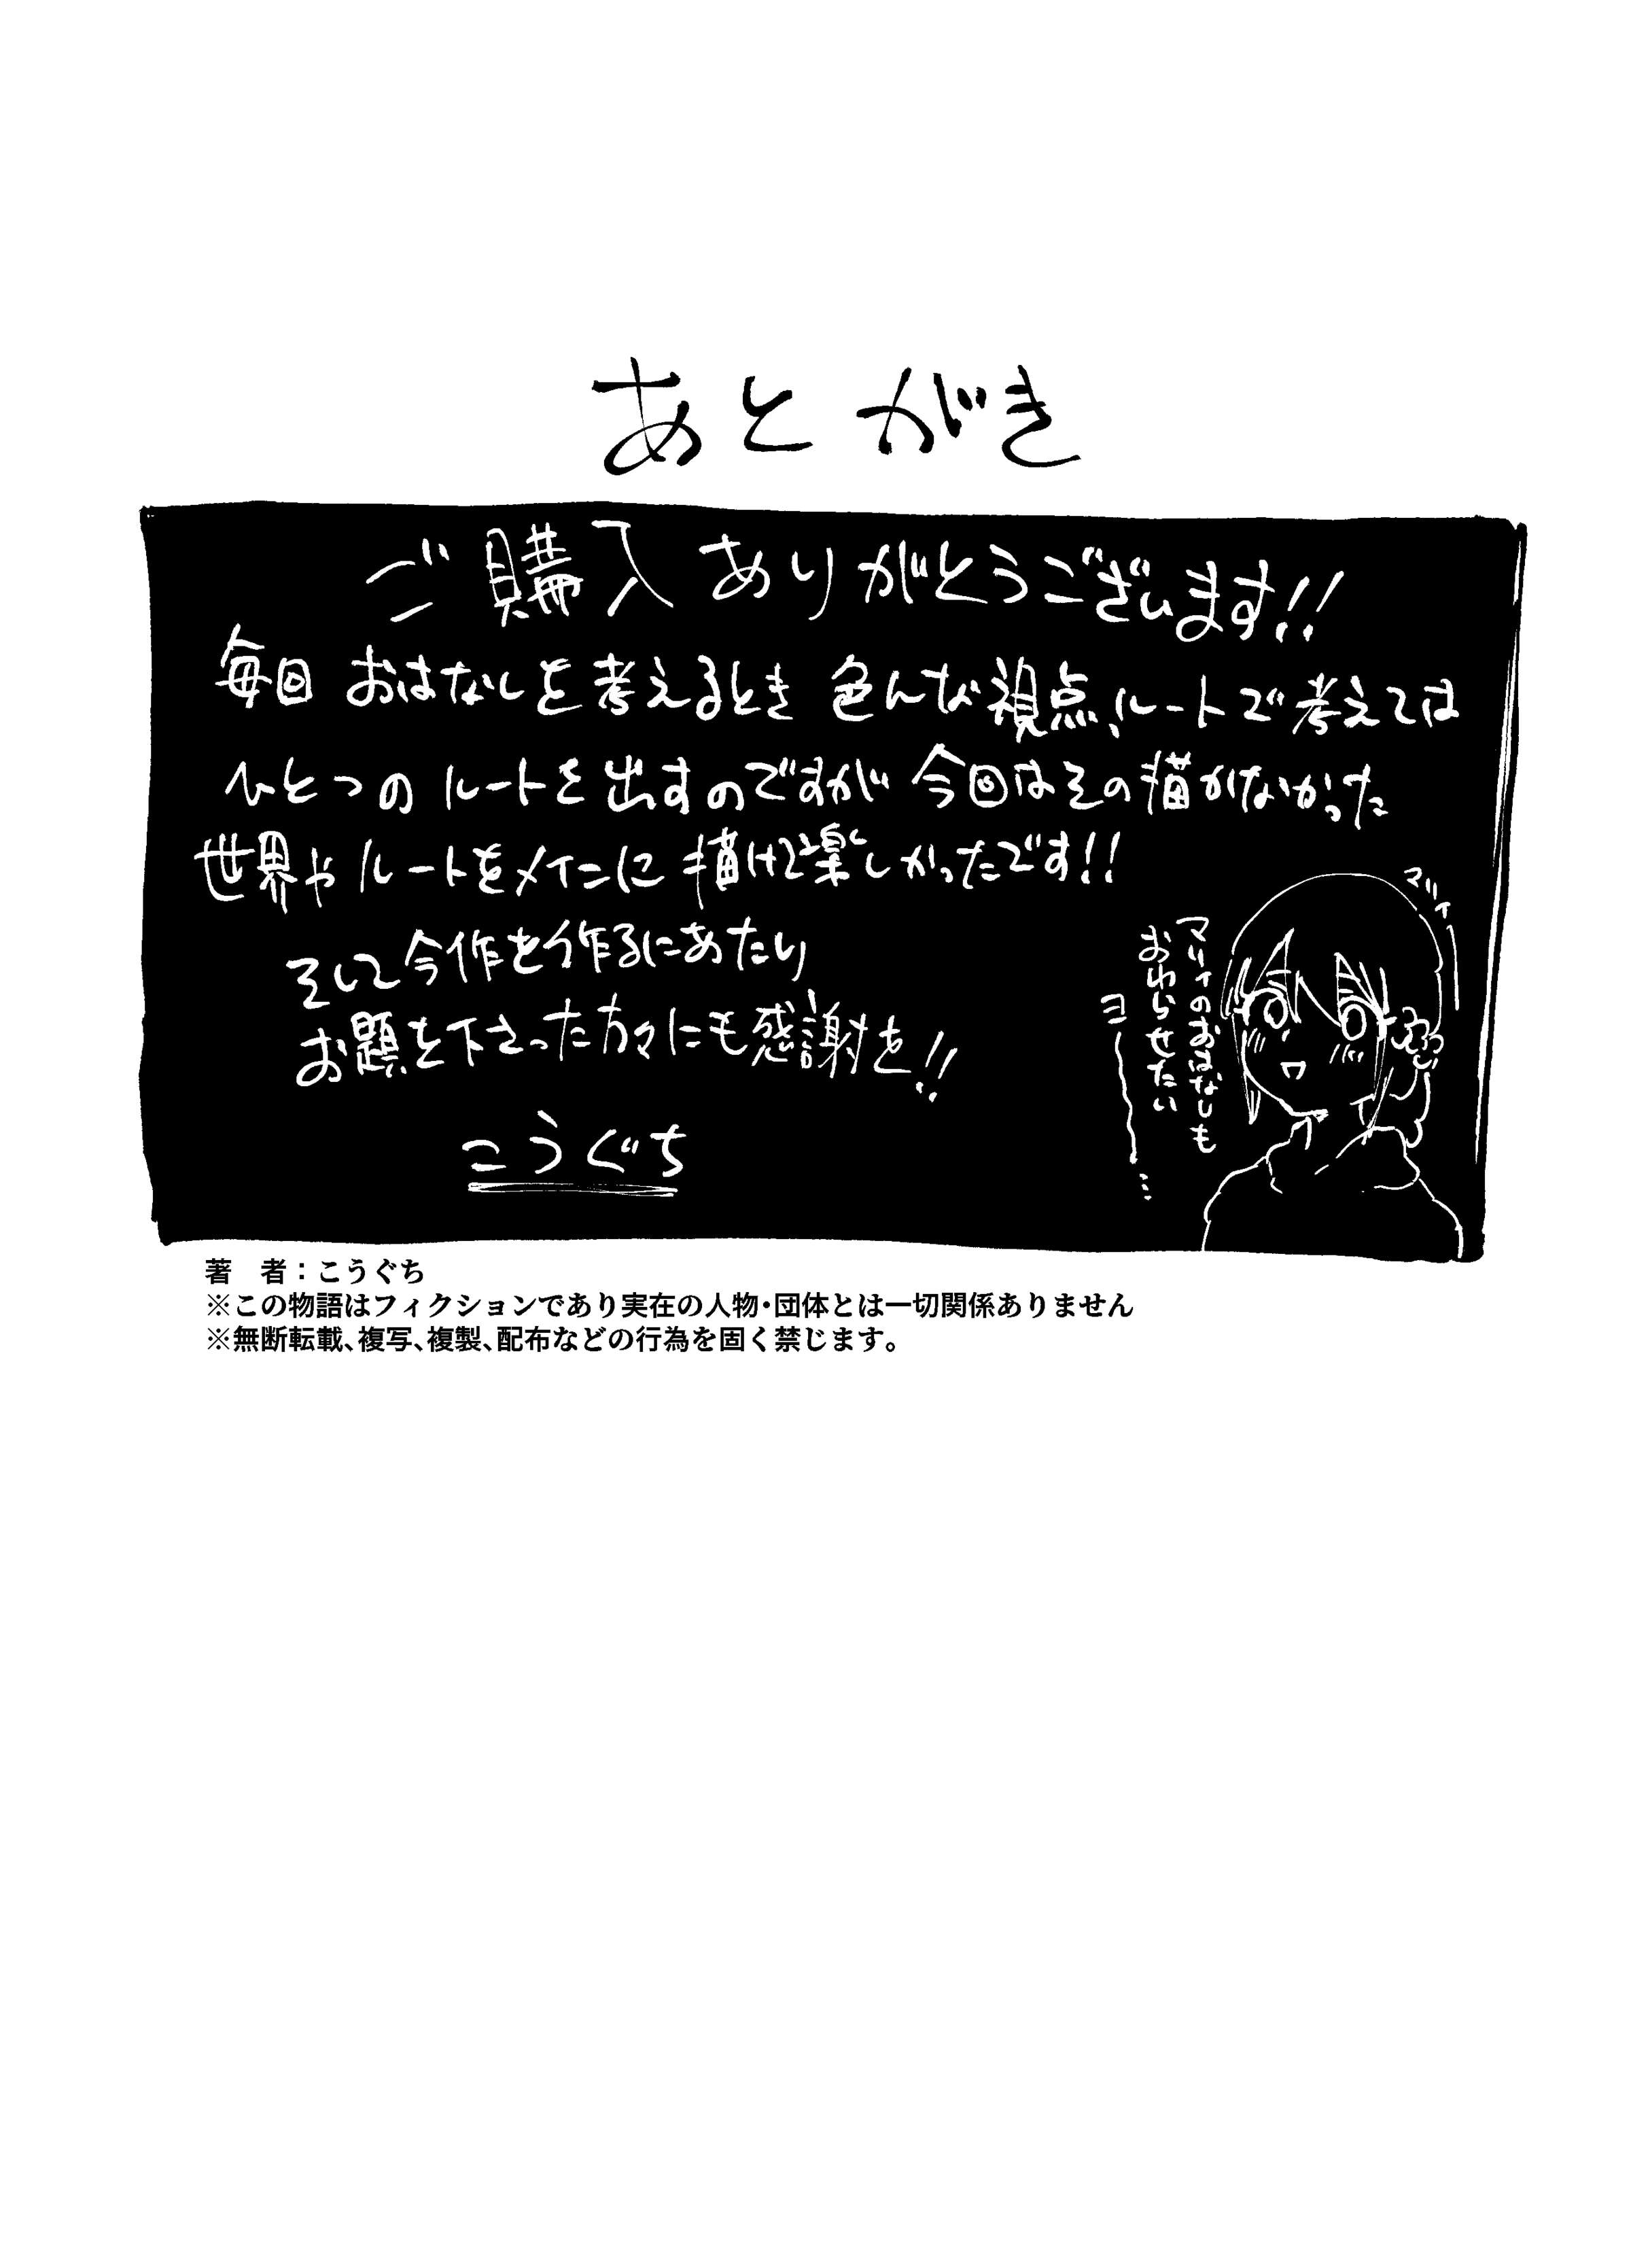 あとがき
ご購入ありがとうございます!!
毎回おはなしを考えるとき色んな視点、ルートで考えては
ひとつのルートを出すのですが今回はその描かなかった
世界やルートをメインに描けて楽しかったです!!
そして今作を作るにあたり
お題を下さった方々にも感謝を!!
こうぐち
マリィ
マリィのおはなしも
おわらせたい
ヨー〜〜…
著　者：こうぐち
※この物語はフィクションであり実在の人物・団体とは一切関係ありません
※無断転載、複写、複製、配布などの行為を固く禁じます。